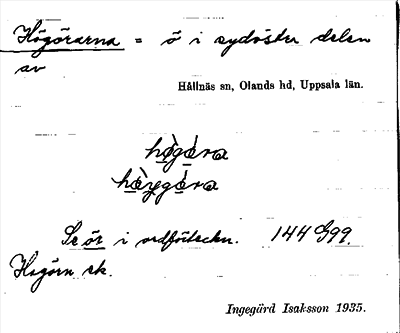 Högörarna = ö i sydöstra delen
av
Hållnäs sn, Olands hd, Uppsala län.
Se ör i ordförteckn. 144 G99
Hsgörn sk.
Ingegärd Isaksson 1935.